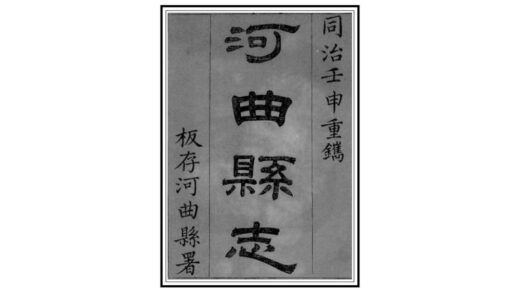 同治壬申重鐫
河曲縣志
板存河曲縣署